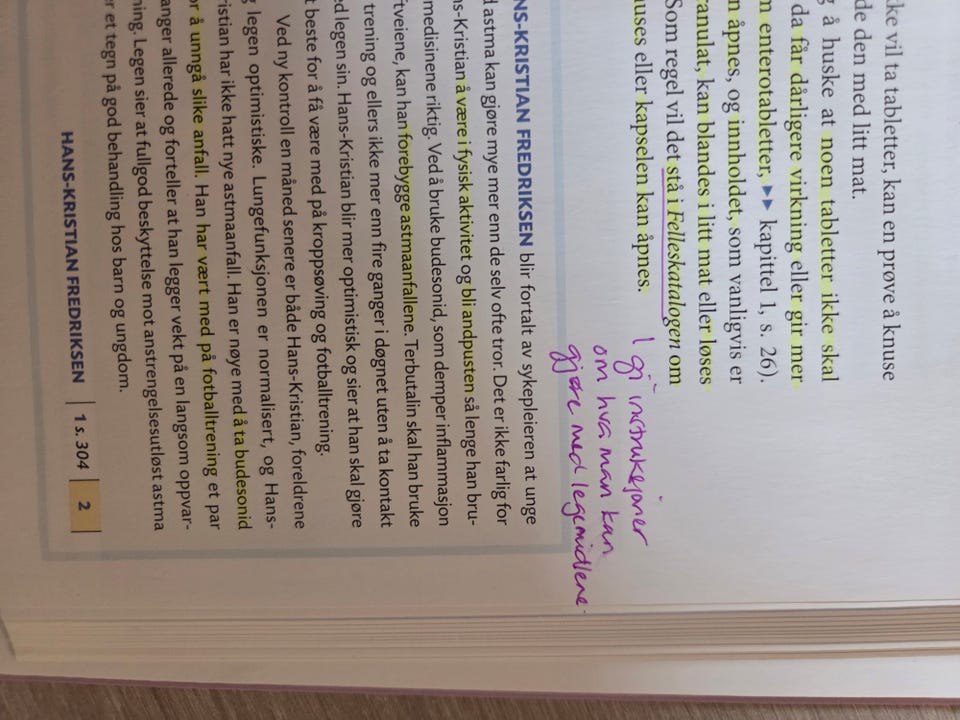 ke vil ta tabletter, kan en prøve å knuse
de den med litt mat.
å huske at noen tabletter ikke skal
da får dårligere virkning eller gir mer
m enterotabletter, ▸▸ kapittel 1, s. 26).
n åpnes, og innholdet, som vanligvis er
ranulat, kan blandes i litt mat eller løses
Som regel vil det stå i Felleskatalogen om
uses eller kapselen kan åpnes.
gi instruksjoner
om hva man kan
gjøre med legemidlene.
NS-KRISTIAN FREDRIKSEN blir fortalt av sykepleieren at unge
d astma kan gjøre mye mer enn de selv ofte tror. Det er ikke farlig for
ns-Kristian å være i fysisk aktivitet og bli andpusten så lenge han bru-
medisinene riktig. Ved å bruke budesonid, som demper inflammasjon
ftveiene, kan han forebygge astmaanfallene. Terbutalin skal han bruke
trening og ellers ikke mer enn fire ganger i døgnet uten å ta kontakt
d legen sin. Hans-Kristian blir mer optimistisk og sier at han skal gjøre
t beste for å få være med på kroppsøving og fotballtrening.
Ved ny kontroll en måned senere er både Hans-Kristian, foreldrene
g legen optimistiske. Lungefunksjonen er normalisert, og Hans-
ristian har ikke hatt nye astmaanfall. Han er nøye med å ta budesonid
or å unngå slike anfall. Han har vært med på fotballtrening et par
anger allerede og forteller at han legger vekt på en langsom oppvar-
ning. Legen sier at fullgod beskyttelse mot anstrengelsesutløst astma
er et tegn på god behandling hos barn og ungdom.
HANS-KRISTIAN FREDRIKSEN | 1 s. 304 | 2